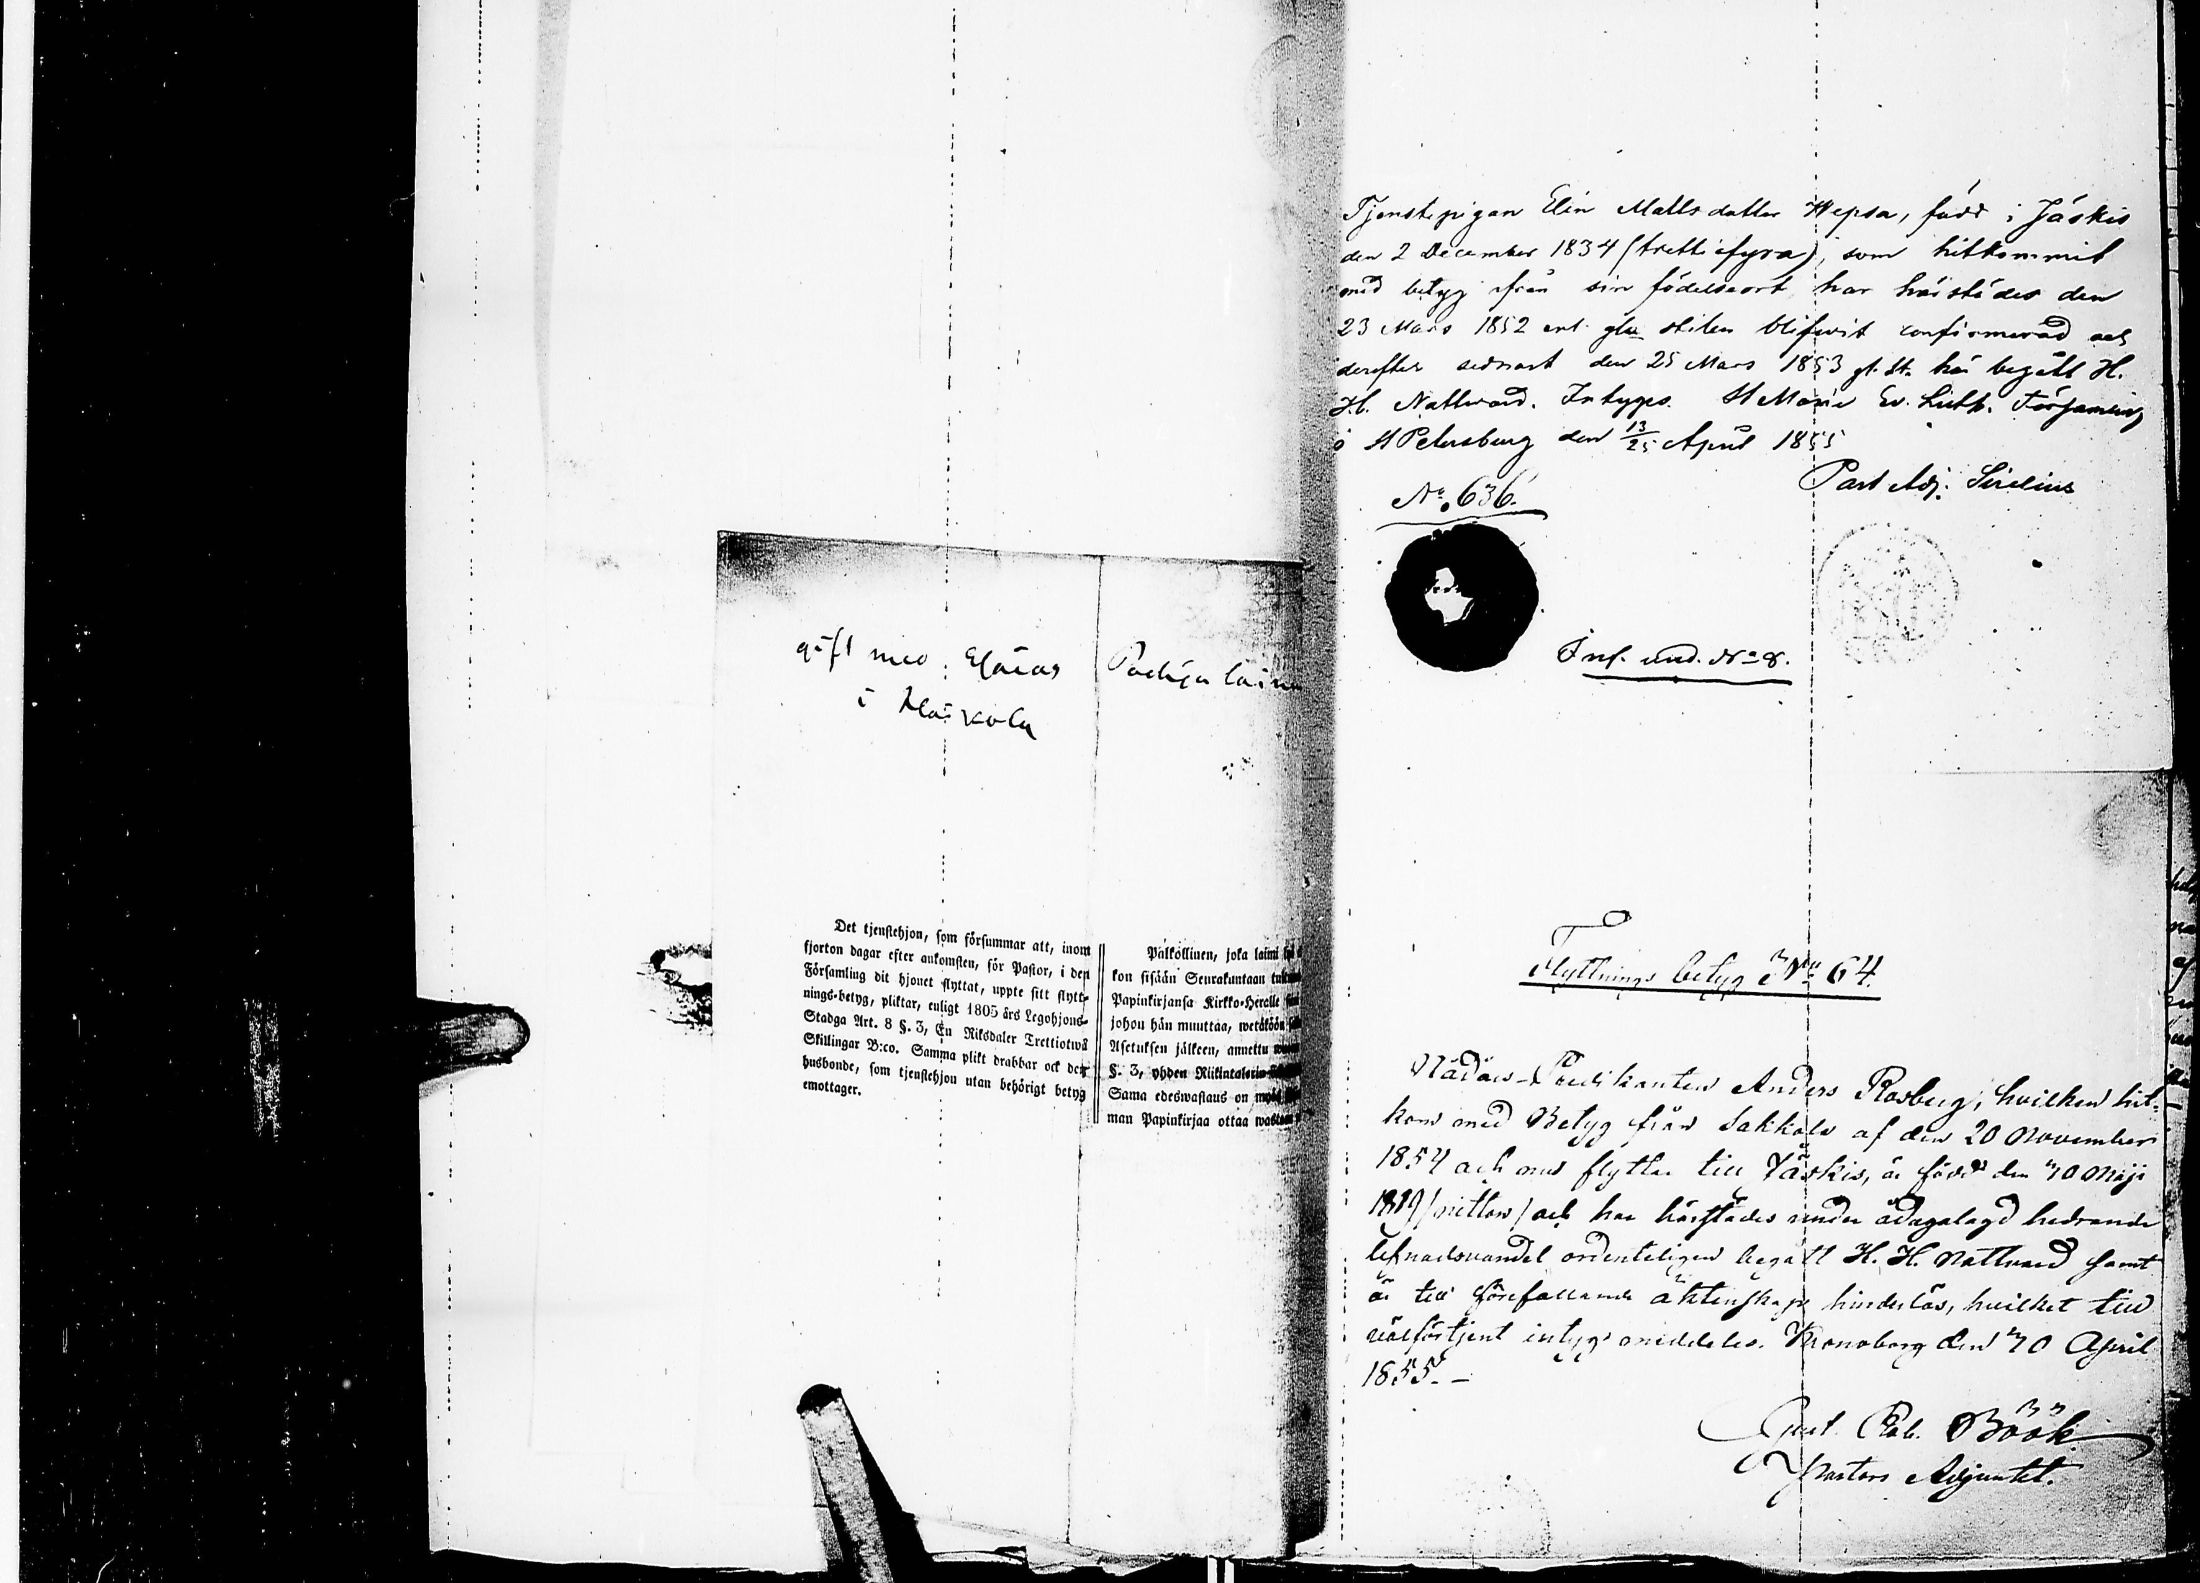 gift med Esaias
i Kaskola
Det tjenstehjon, som försummar att, inom
fjorton dagar efter ankomsten, för Pastor, i den
Församling dit hjonet flyttat, uppte sitt flytt-
nings-betyg, pliktar, enligt 1805 års Legohjons-
Stadga Art. 8 §. 3, En Riksdaler Trettiotwå
Skillingar B:co. Samma plikt drabbar ock den
husbonde, som tjenstehjon utan behörigt betyg
emottager.
Palkollinen, joka laimi
kon sisään Seurakuntaan
Papinkirjansa Kirkko-Heralle
johon hän muuttaa, wetäköön
Asetuksen jälkeen, annettu
§. 3, yhden Riikintalerin
Sama edeswastaus on
man Papinkirjaa ottaa
Tjenstepigan Elin Mattsdotter Hepsa, född i Jäskis
den 2 December 1834 (trettiofyra), som hitkommit
med betyg ifrån sin födelseort har härstädes den
23 Mars 1852 enl. gla stilen blifwit confirmerad och
derefter sednast den 25 Mars 1853 gl. st. här begått H.
H. Nattward. Intygas. St Mariæ Ev. Luth. Församling
i St Petersburg den 13/25 April 1855
Past Adj. Sirelius
No. 636.
Inf. und. No 8.
Flyttnings betyg No 64.
Nådårs-Predikanten Anders Rosberg, hvilken hit-
kom med Betyg från Sakkola af den 20 November
1854 och nu flyttar till Jäskis, är född den 30 Maji
1819 /nitton/ och har härstädes under ådagalagd hedrande
lefnadsvandel ordenteligen begått H. H. Nattvard samt
är till förefallande äktenskap hinderlös, hvilket till
välförtjent intyg meddelas. Kronoborg den 30 April
1855. –
Gust. Rob. Böök
Pastors Adjunkt.